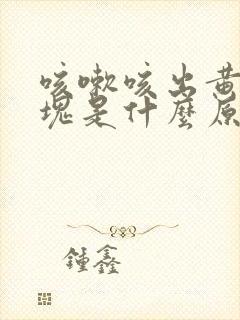 咳嗽咳出黄
塊是什麼原
鍾鑫